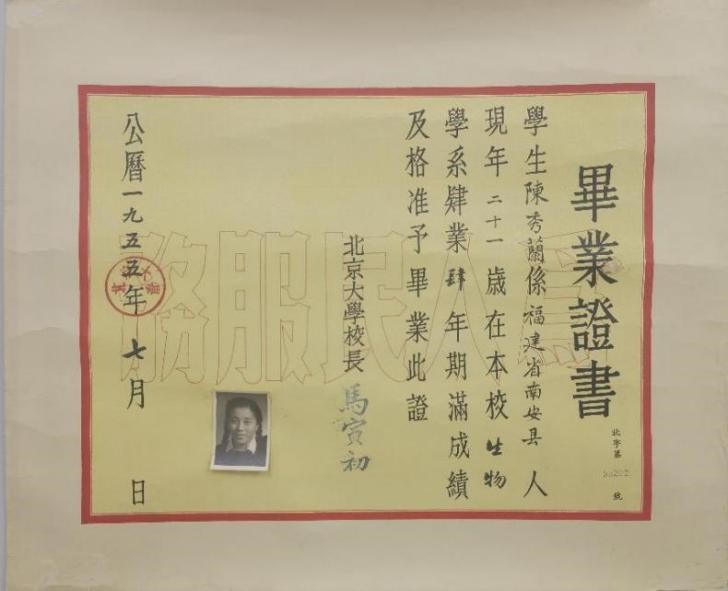 畢業證書
北字第
號
學生陳秀蘭係福建省南安县人
現年二十一歲在本校生物
學系肄業肆年期滿成績
及格准予畢業此證
北京大學校長 馬寅初
公曆一九五五年七月 日
務服民人爲